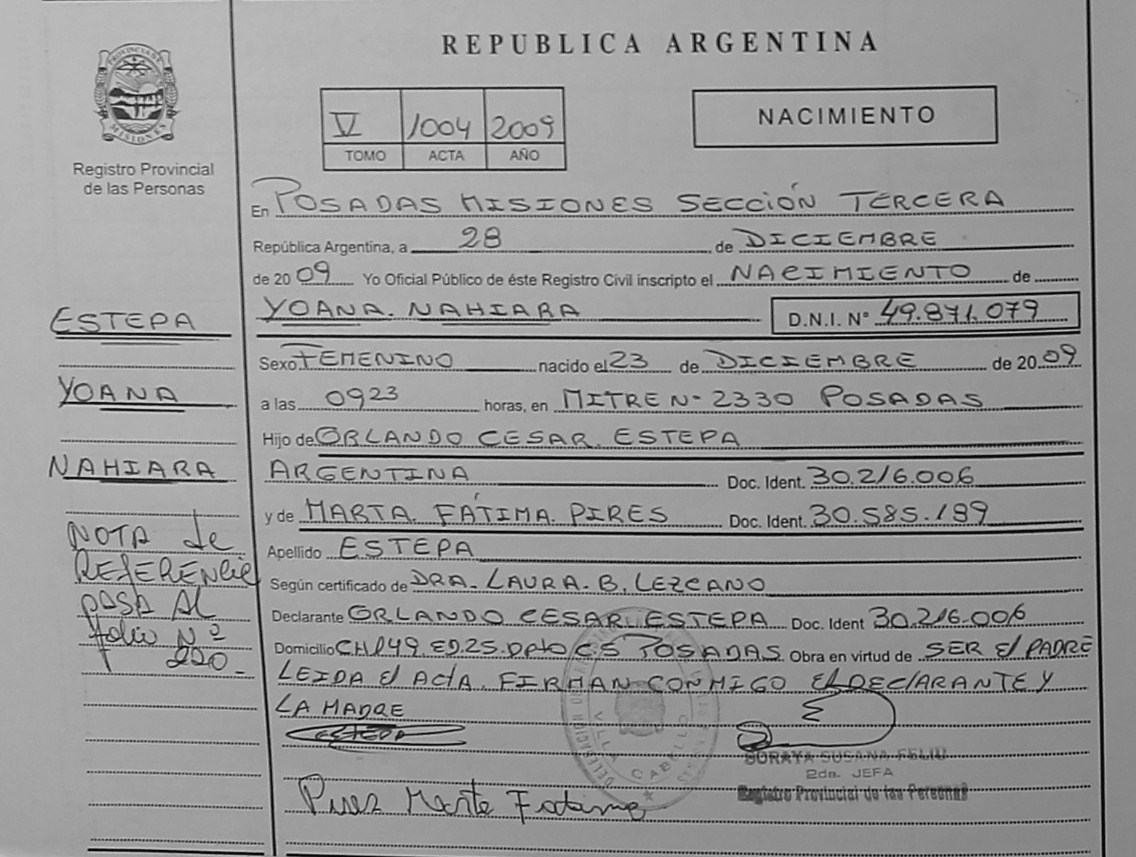 PROVINCIA DE
MISIONES
Registro Provincial
de las Personas
REPUBLICA ARGENTINA
V 1004 2009
TOMO ACTA AÑO
NACIMIENTO
En POSADAS MISIONES SECCIÓN TERCERA
República Argentina, a 28 de DICIEMBRE
de 2009 Yo Oficial Público de éste Registro Civil inscripto el NACIMIENTO de
YOANA. NAHIARA D.N.I. N° 49.871.079
Sexo FEMENINO nacido el 23 de DICIEMBRE de 2009
a las 0923 horas, en MITRE Nº 2330 POSADAS
Hijo de ORLANDO CESAR. ESTEPA
ARGENTINA Doc. Ident. 30.216.006
y de MARTA. FÁTIMA. PIRES Doc. Ident. 30.585.189
Apellido ESTEPA
Según certificado de DRA. LAURA. B. LEZCANO
Declarante ORLANDO CESAR ESTEPA Doc. Ident 30.216.006
Domicilio CH149 ED.25 Dpto C.5 POSADAS Obra en virtud de SER El PADRE
LEIDA El ActA. FIRMAN CONMIGO El DEClARANTE Y
LA MADRE
ESTEPA
Pires Marta Fatima
SORAYA SUSANA FELIU
2da. JEFA
Registro Provincial de las Personas
VILLA CABELLO
ESTEPA
YOANA
NAHIARA
NOTA de
REFERENCIA
PASA AL
folio Nº
220-